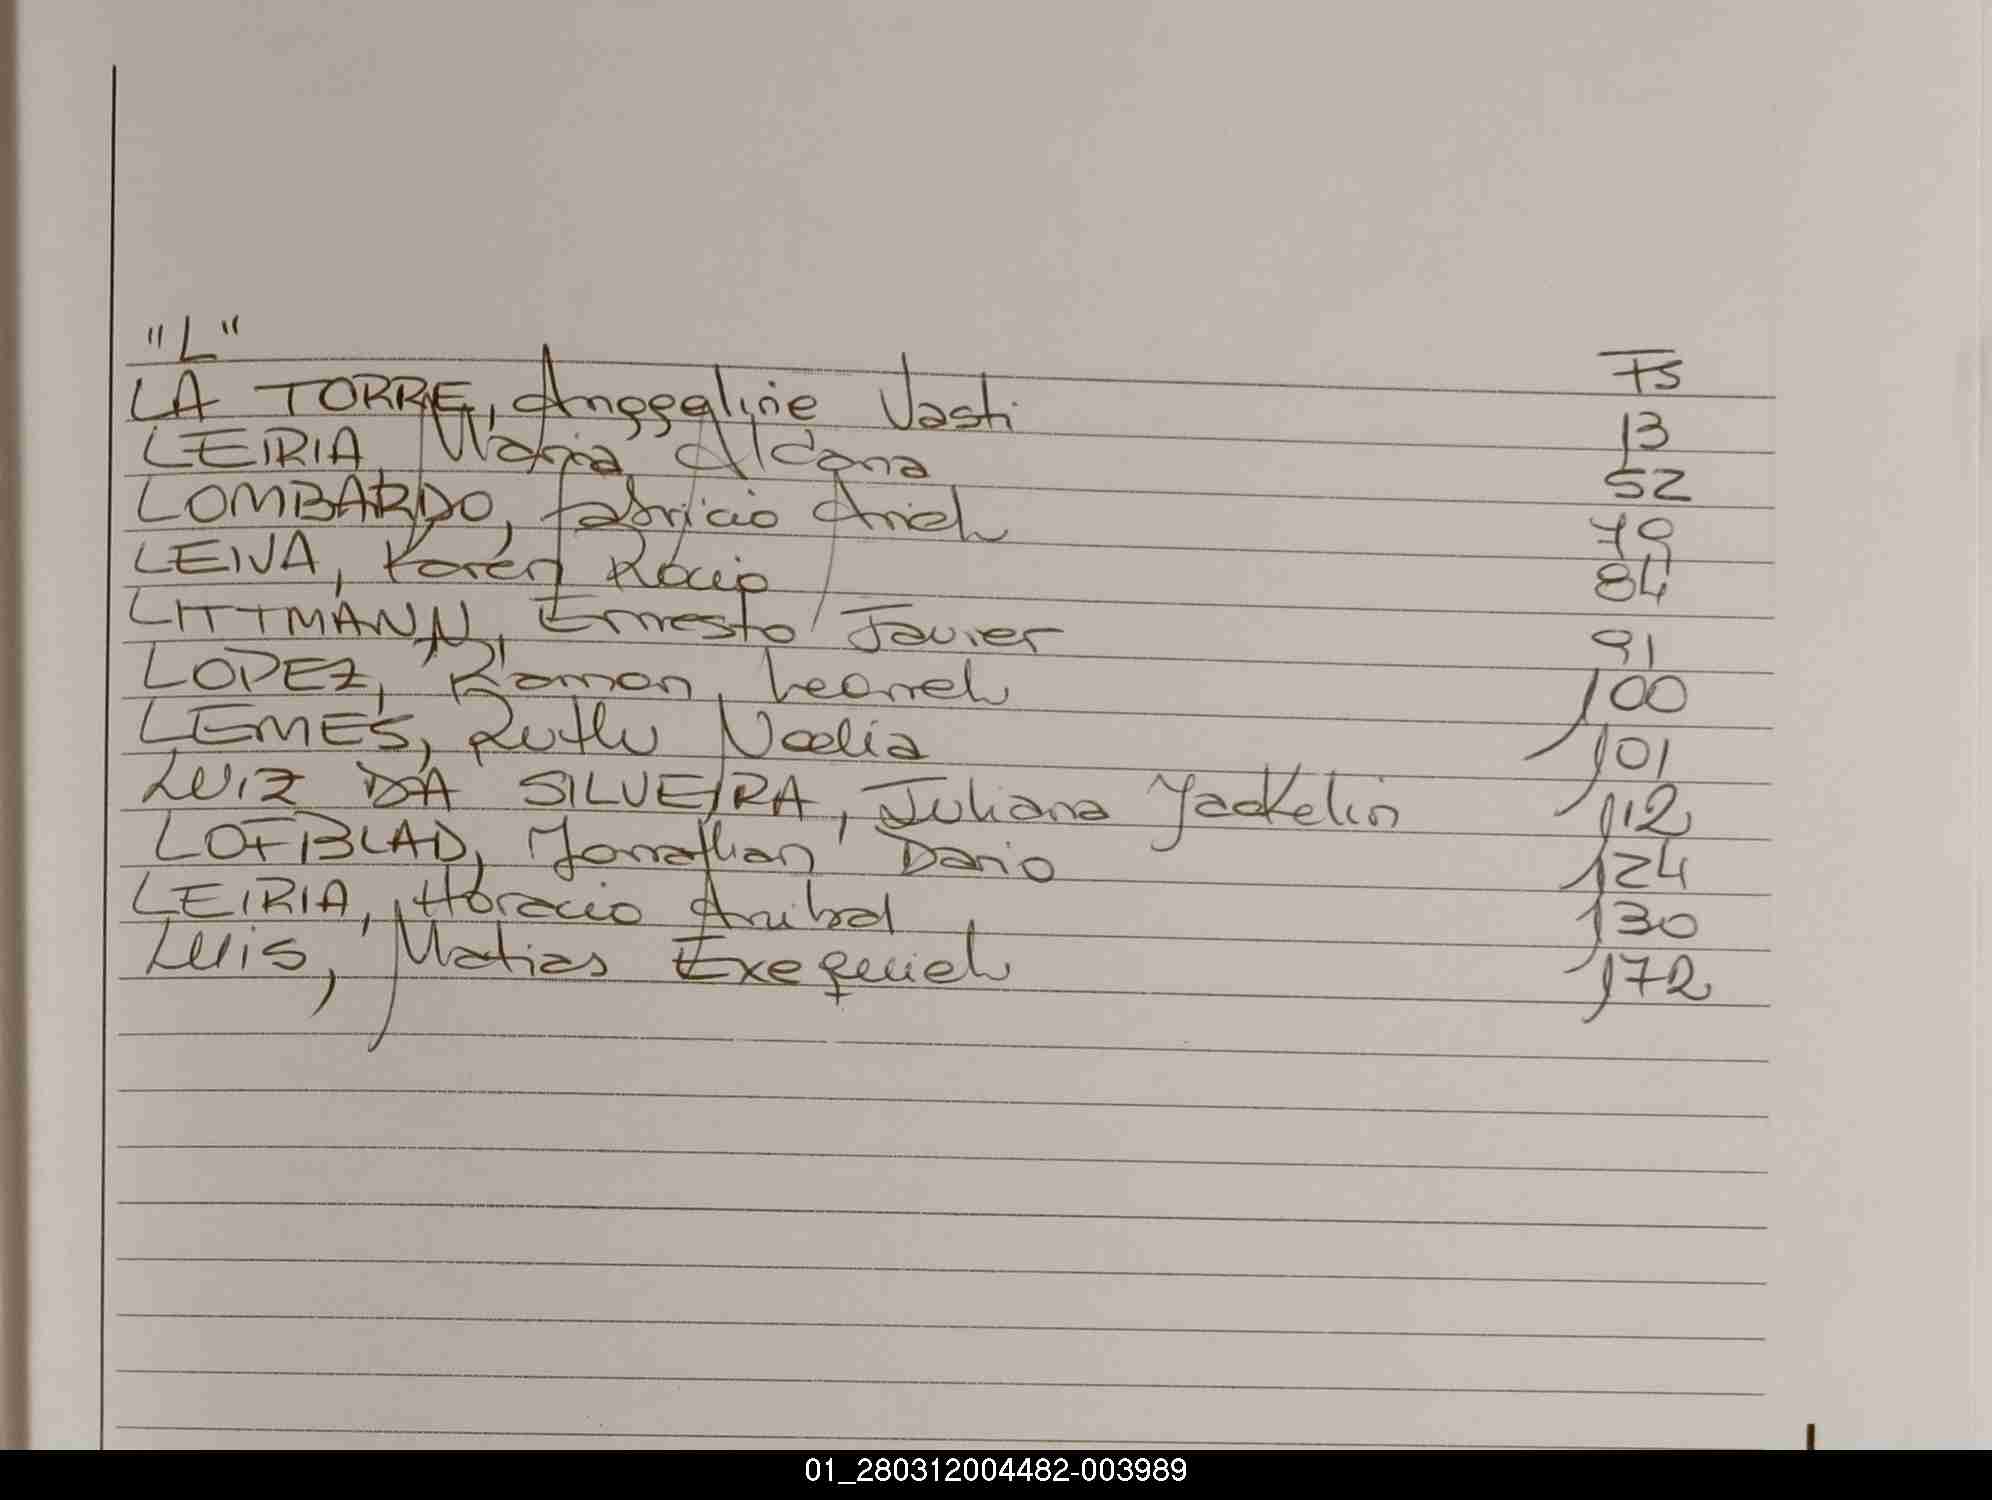 "L"
Fs
LA TORRE, Anggeline Vasti 13
LEIRIA, Maria Aldana 52
LOMBARDO, Fabricio Ariel 79
LEIVA, Karen Rocio 84
LITTMANN, Ernesto Javier 91
LOPEZ, Ramon Leonel 100
LEMES, Ruth Noelia 101
LUIZ DA SILVEIRA, Juliana Jackelin 112
LOFIBLAD, Jonathan Dario 124
LEIRIA, Horacio Anibal 130
LUIS, Matias Exequiel 172
01_280312004482-003989